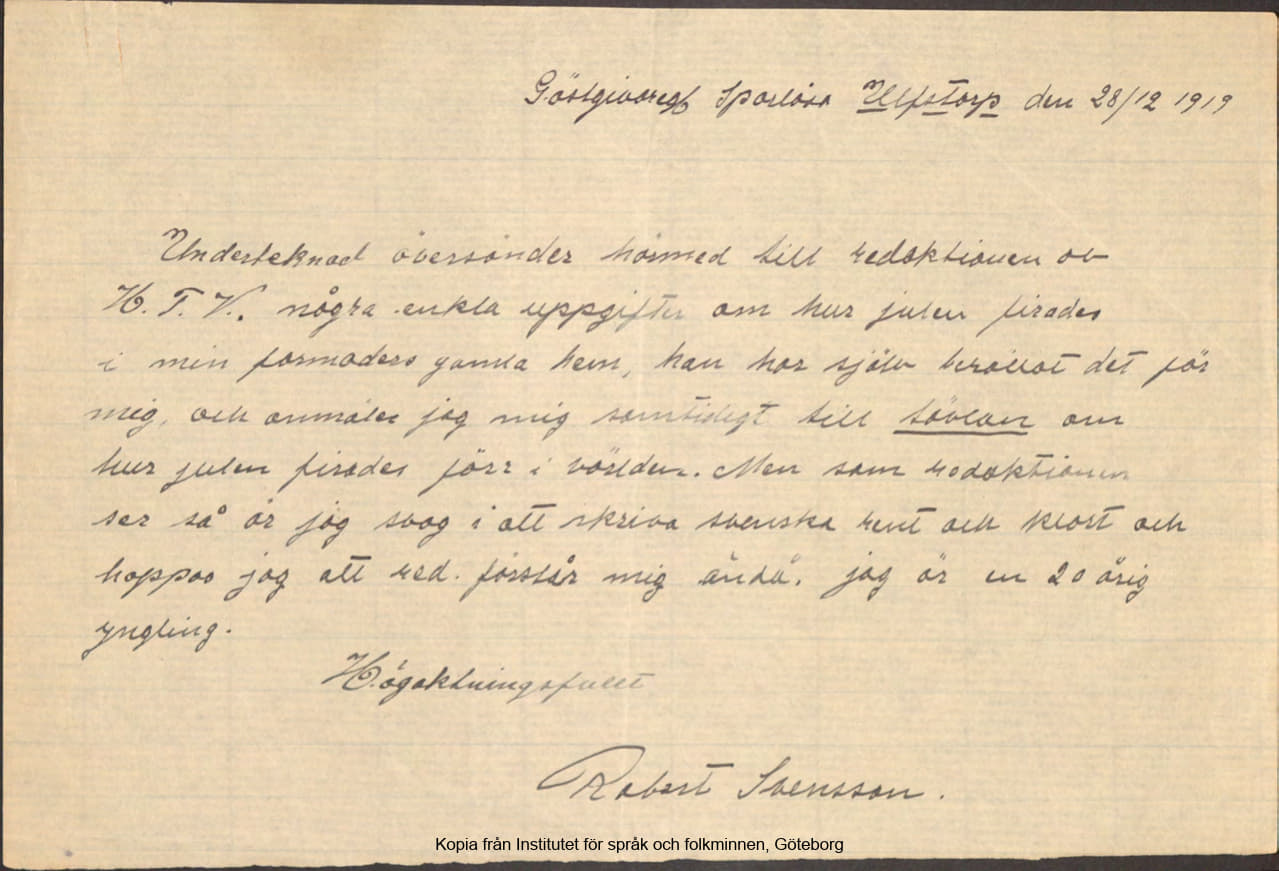 Gästgivaregd Sparlösa Ulfstorp den 28/12 1919
Undertecknad översänder härmed till redaktionen av
H. T. V. några enkla uppgifter om hur julen firades
i min farmoders gamla hem, han har själv berättat det för
mig, och anmäler jag mig samtidigt till tävlan om
hur julen firades förr i världen. Men som redaktionen
ser så är jag svag i att skriva svenska rent och klart och
hoppas jag att red. förstår mig ändå, jag är en 20 årig
yngling.
Högaktningsfullt
Robert Svensson.
Kopia från Institutet för språk och folkminnen, Göteborg